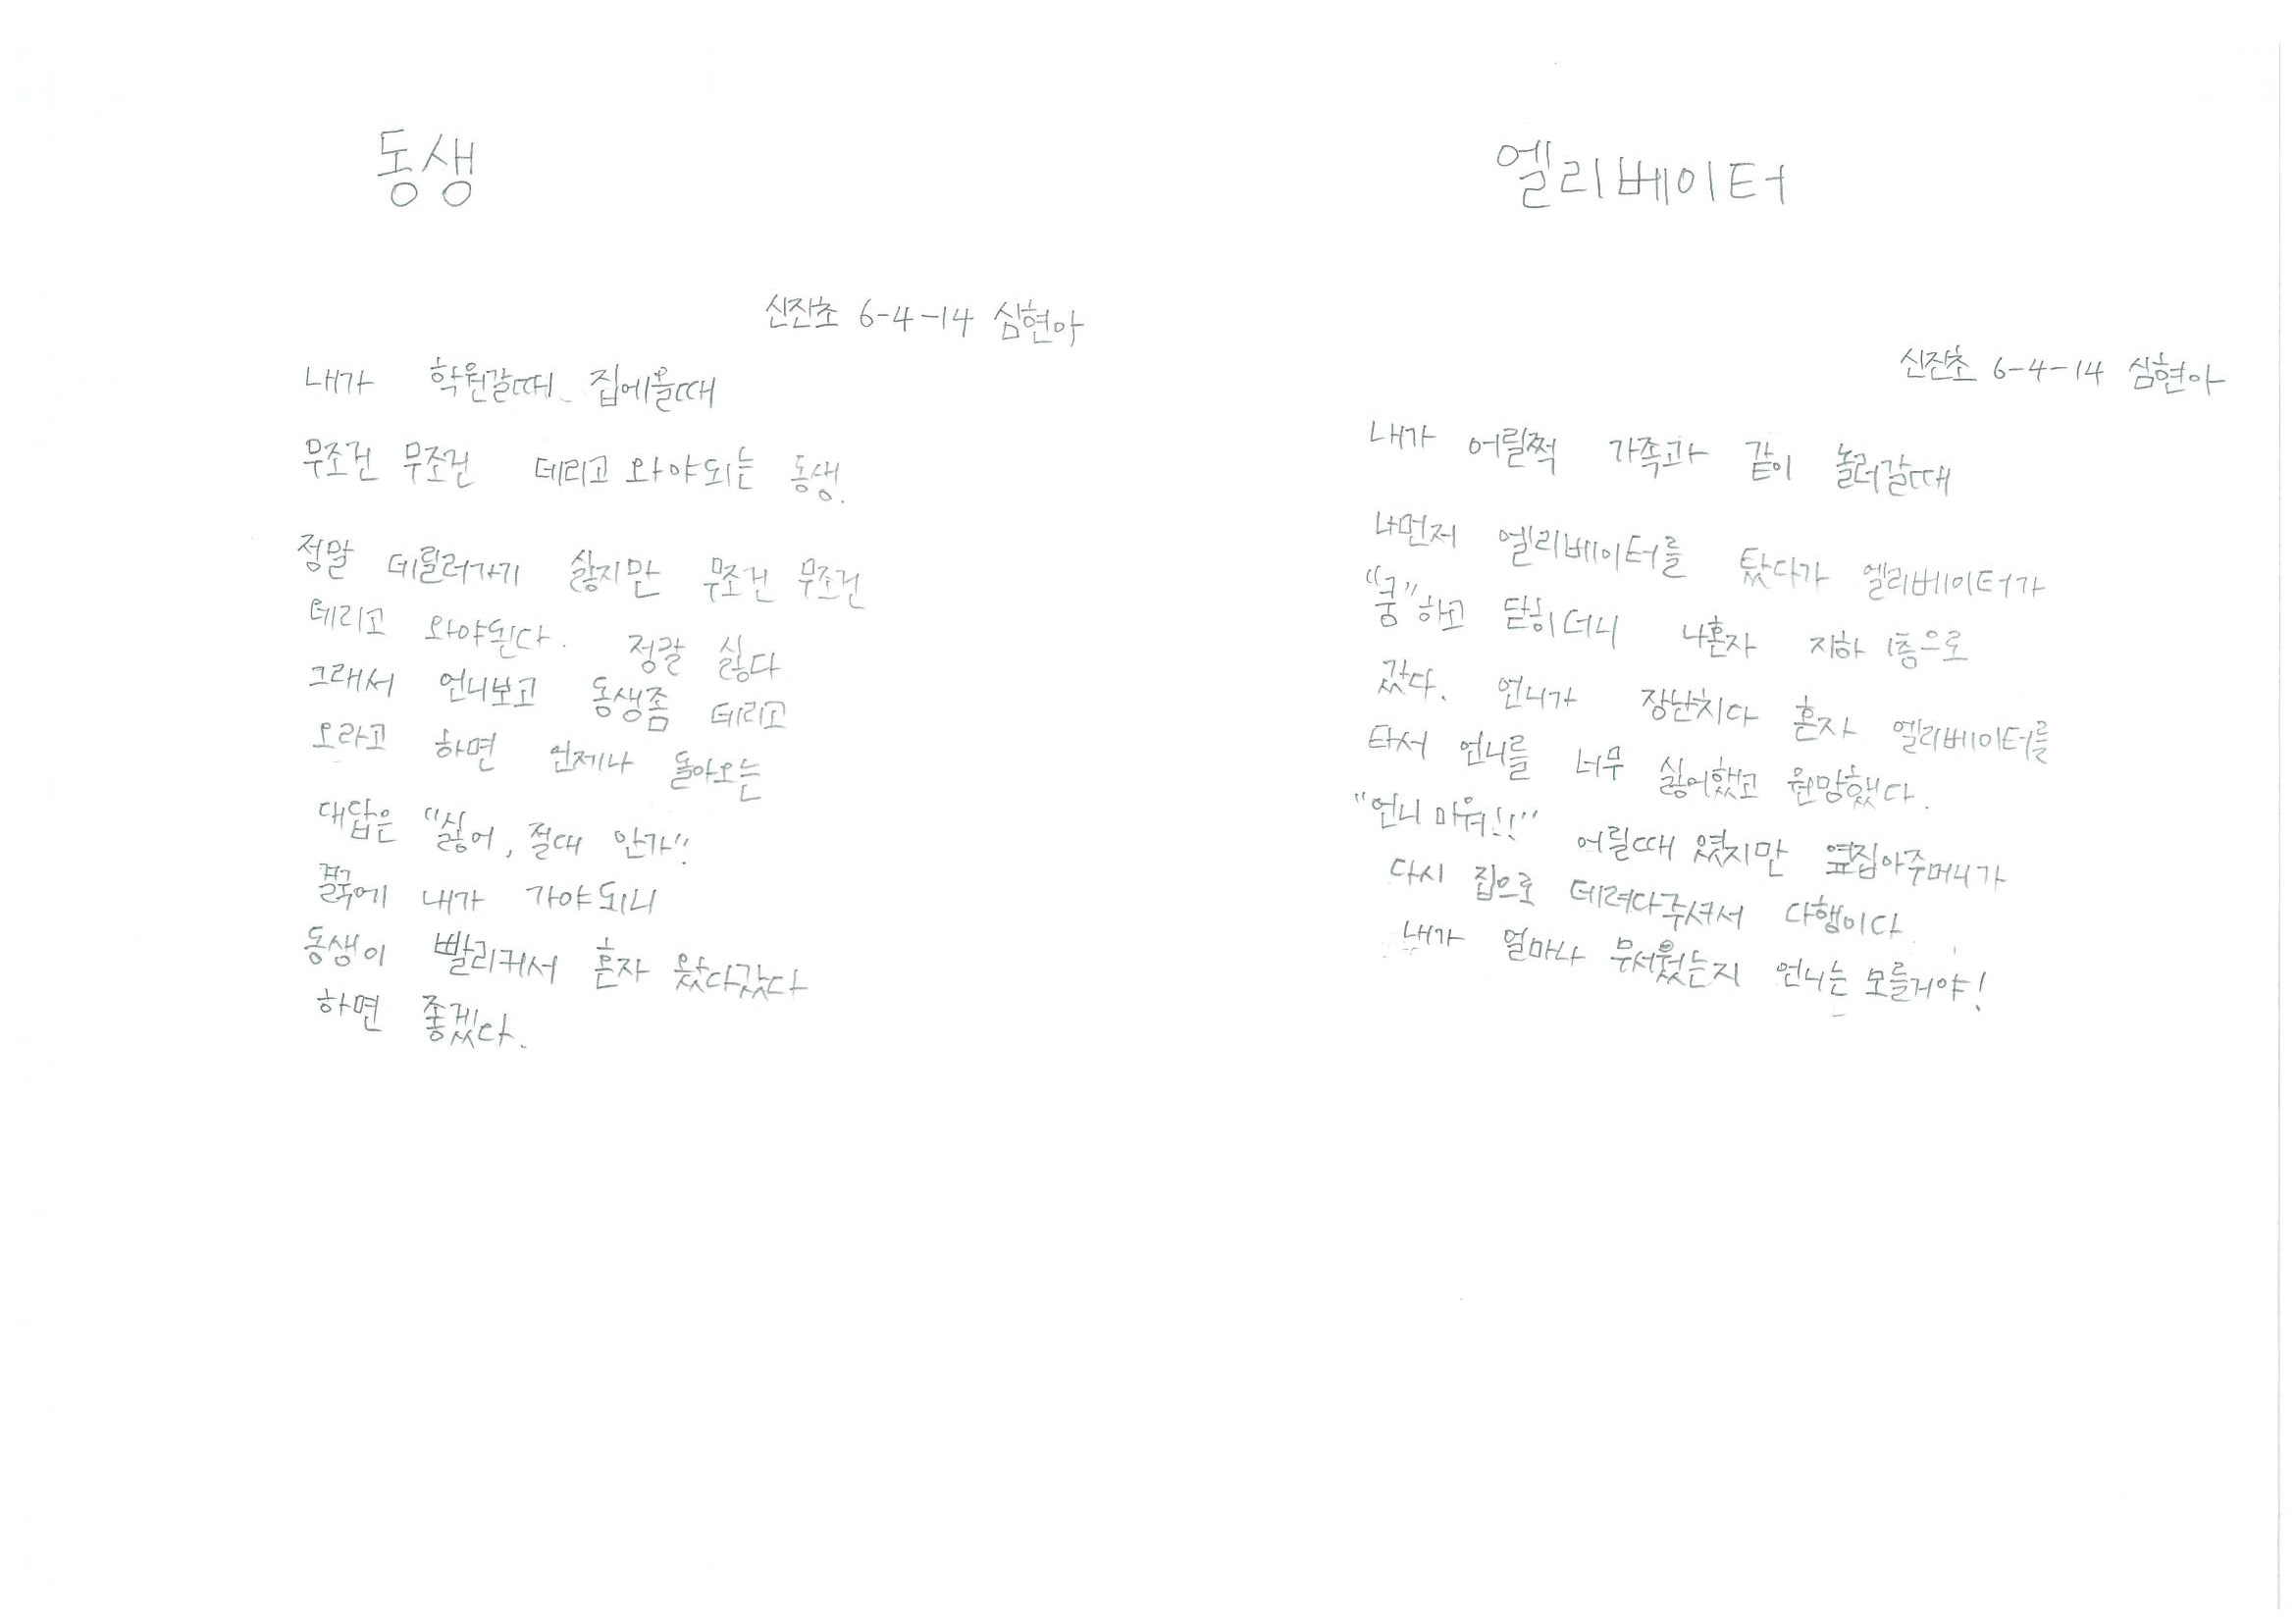 동생
신진초 6-4-14 심현아
내가 학원갈때 집에올때
무조건 무조건 데리고 와야되는 동생.
정말 데릴러가기 싫지만 무조건 무조건
데리고 와야된다. 정말 싫다
그래서 언니보고 동생좀 데리고
오라고 하면 언제나 돌아오는
대답은 "싫어, 절대 안가"
내가 가야되니
동생이 빨리커서 혼자 왔다갔다
하면 좋겠다.
엘리베이터
신진초 6-4-14 심현아
내가 어릴쩍 가족과 같이 놀러갈때
나먼저 엘리베이터를 탔다가 엘리베이터가
"쿵"하고 닫히더니 나혼자 지하 1층으로
갔다. 언니가 장난치다 혼자 엘리베이터를
타서 언니를 너무 싫어했고 원망했다.
"언니 미워!!" 어릴때 였지만 옆집아주머니가
다시 집으로 데려다주셔서 다행이다
내가 얼마나 무서웠는지 언니는 모를거야!